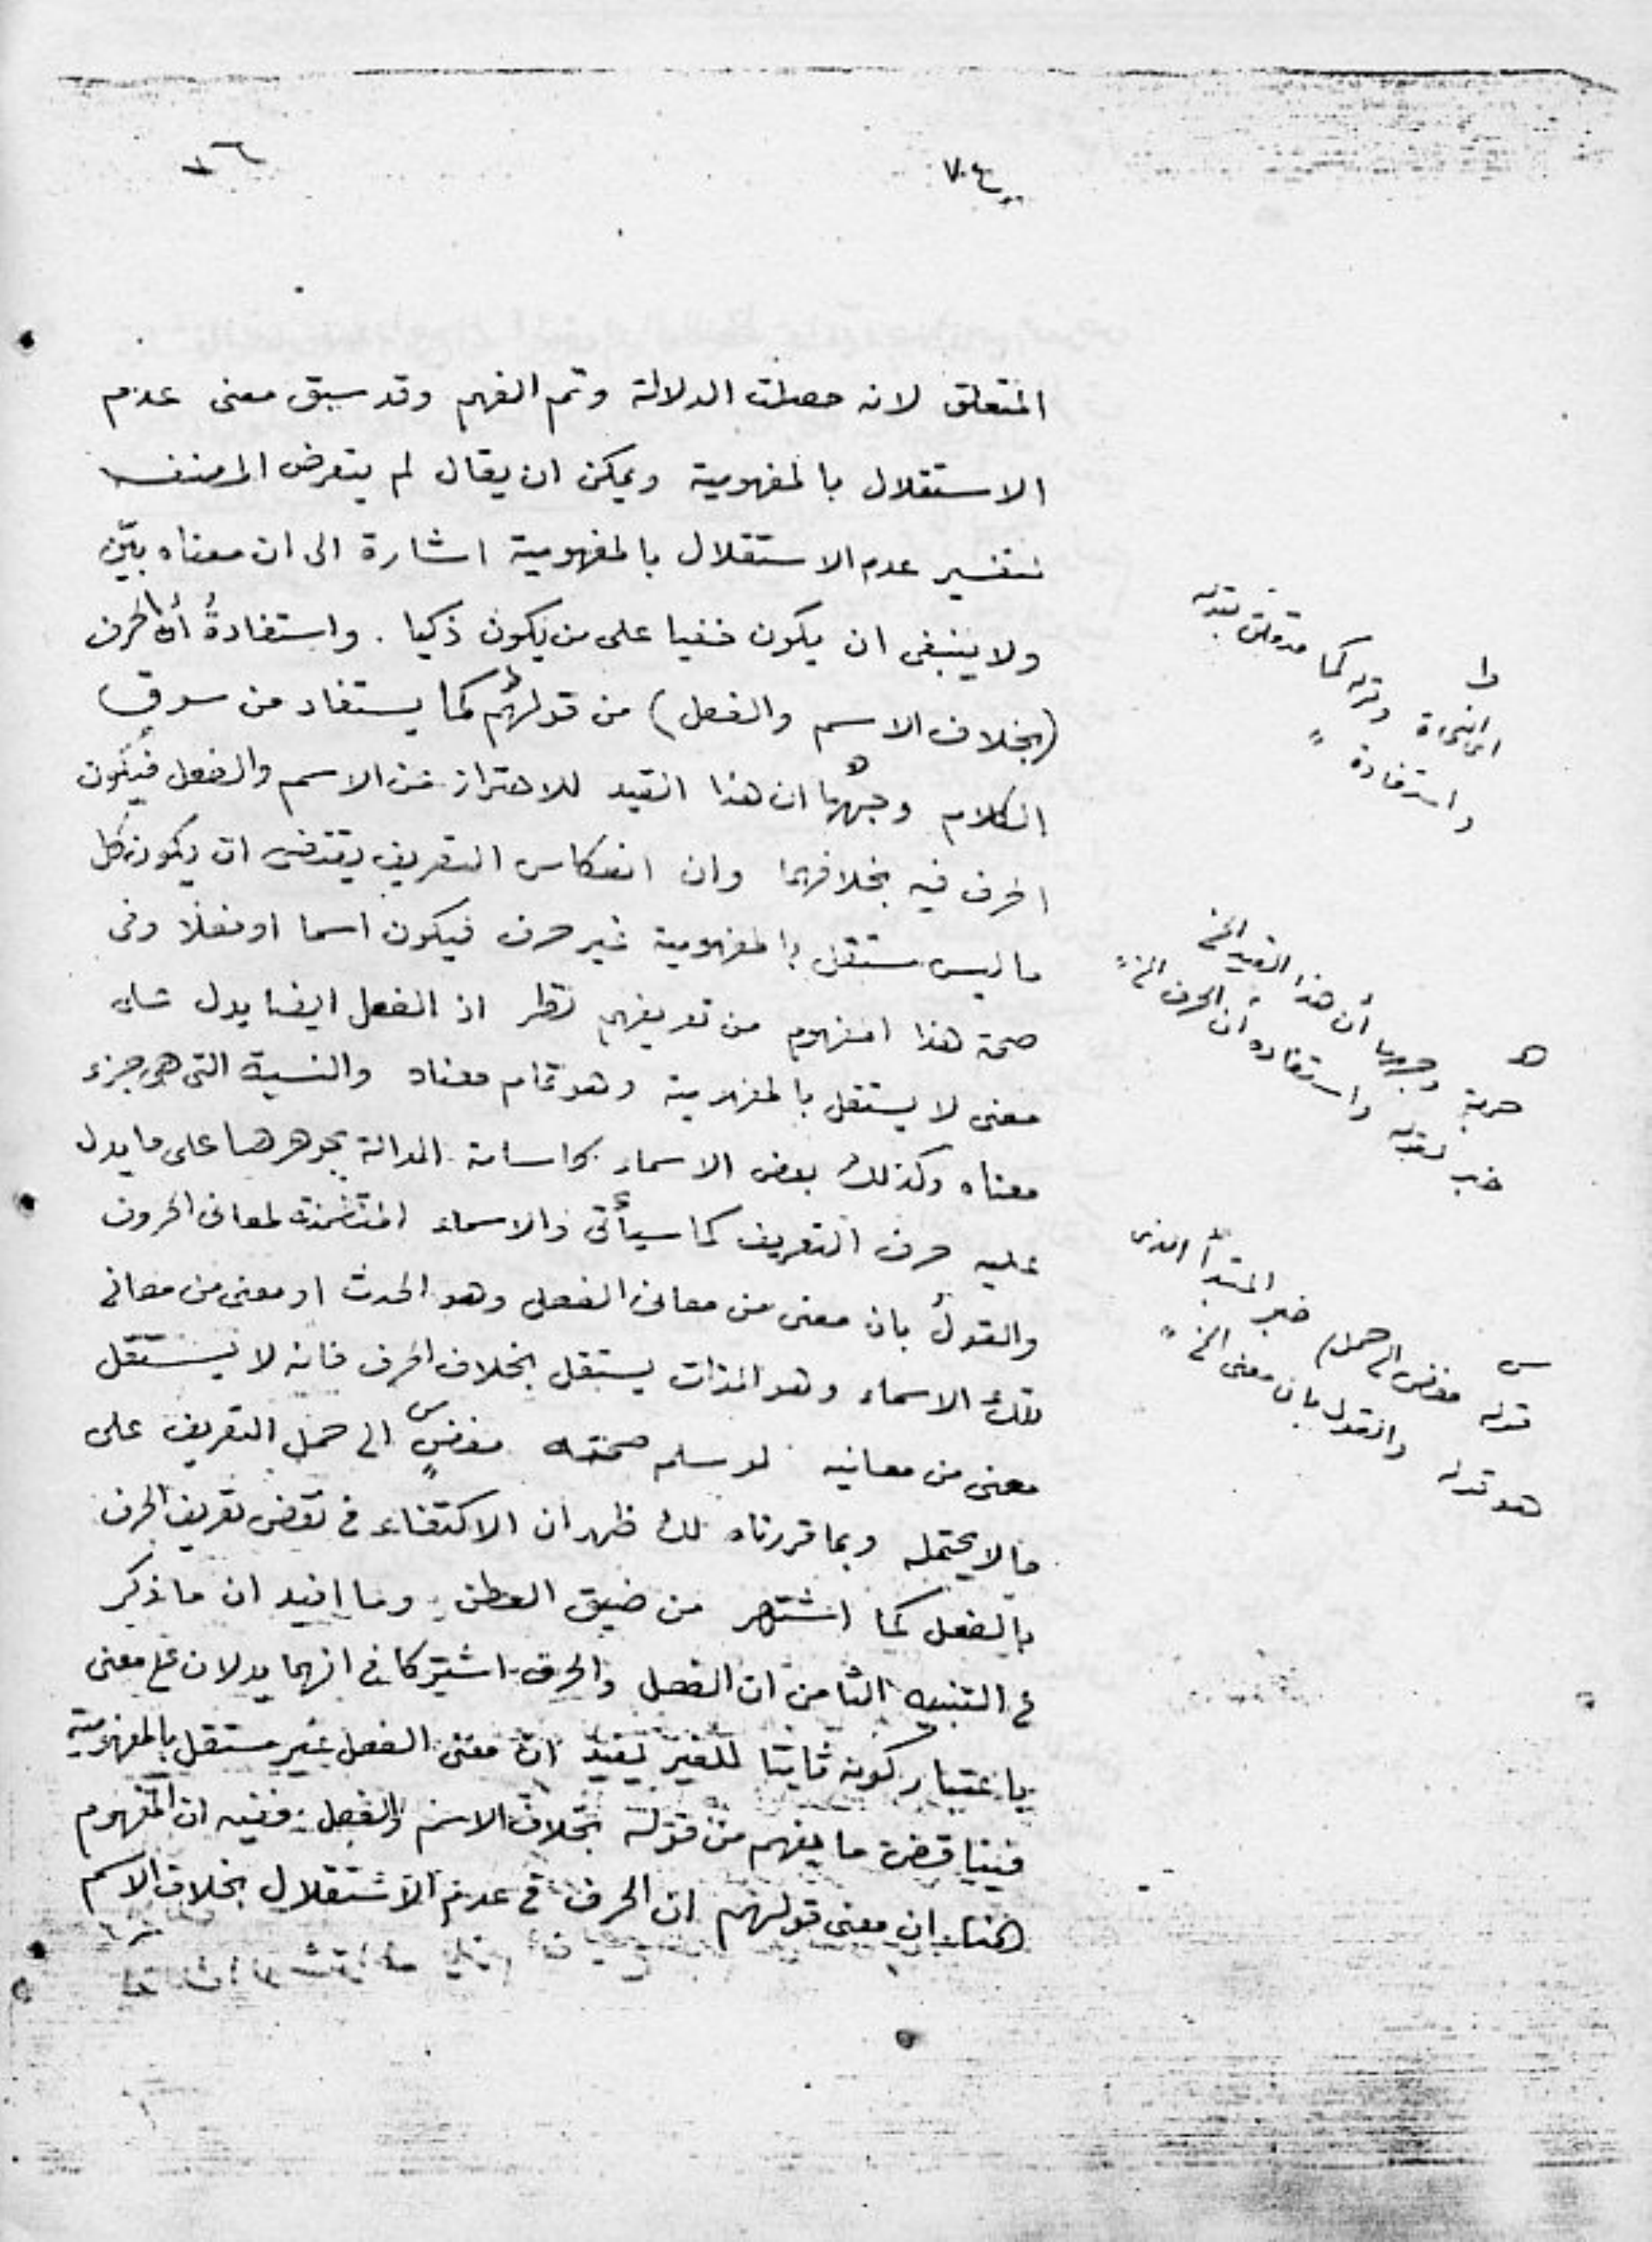 المتعلق لانه حصلت الدلالة وتم الفهم وقد سبق معنى عدم
الاستقلال بالمفهومية ويمكن ان يقال لم يتعرض المصنف
لتفسير عدم الاستقلال بالمفهومية اشارة الى ان معناه بيّن
ولا ينبغى ان يكون خفيا على من يكون ذكيا . واستفادةُ أن الحرف
(بخلاف الاسم والفعل) من قولهم كما يستفاد من سوق
الكلام وجهها ان هذا القيد للاحتراز عن الاسم والفعل فيكون
الحرف فيه بخلافهما وان انعكاس التعريف يقتضى ان يكون كل
ما ليس مستقل بالمفهومية غير حرف فيكون اسما او فعلا وفى
صحة هذا المفهوم من تعريفهم نظر اذ الفعل ايضا يدل على
معنى لا يستقل بالمفهومية وهو تمام معناه والنسبة التى هى جزء
معناه وكذلك بعض الاسماء الدالة بجوهرها على ما يدل
عليه حرف التعريف كما سيأتى والاسماء المتضمنة لمعانى الحروف
والقول بان معنى من معانى الفعل وهو الحدث او معنى من معانى
تلك الاسماء وهو الذات يستقل بخلاف الحرف فانه لا يستقل
معنى من معانيه لو سلم صحته مفضٍ الى حمل التعريف على
ما لا يحتمله وبما قررناه لك ظهر ان الاكتفاء فى نقض تعريف الحرف
بالفعل كما اشتهر من ضيق العطن وما افيد ان ما ذكر
فى التنبيه الثامن ان الفعل والحرف اشتركا فى انهما يدلان على معنى
باعتبار كونه ثابتا للغير يفيد ان معنى الفعل غير مستقل بالمفهومية
فيناقض ما يفهم من قوله بخلاف الاسم والفعل ففيه ان المفهوم
هنا ان معنى قولهم ان الحرف فى عدم الاستقلال بخلاف الاسم
اى النحاة وقوله كما متعلق بقوله
واستفادة
وجهها أن هذا القيد الخ
خبر لقوله واستفادة أن الحرف الخ
قوله مفض الى حمل خبر المبتدأ الذى
هو قوله والقول بان معنى الخ